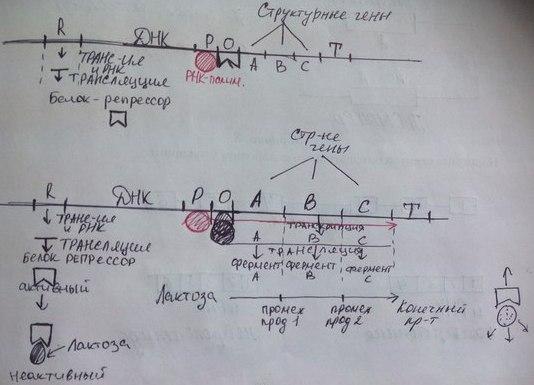 Структурные гены
R
ДНК
P
O
A
B
C
T
ТРАНС-ция
и РНК
ТРАНСЛЯЦИЯ
РНК-полим.
Белок-репрессор
Стр-ные
гены
R
ДНК
P
O
A
B
C
T
ТРАНС-ция
и РНК
ТРАНСЛЯЦИЯ
БЕЛОК РЕПРЕССОР
активный
транскрипция
A
B
C
ТРАНСЛЯЦИЯ
фермент
A
фермент
B
фермент
C
Лактоза
промеж
прод 1
промеж
прод 2
Конечный
пр-т
Лактоза
неактивный